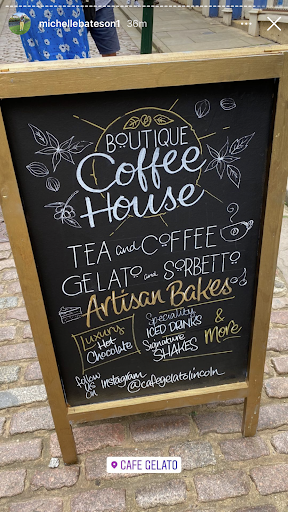 michellebateson1 36m
BOUTIQUE
Coffee
House
TEA and COFFEE
GELATO and SORBETTO
Artisan Bakes
Luxury
Hot
Chocolate
Speciality
ICED DRINKS
Signature
SHAKES
&
More
Follow
us
on
Instagram
@cafegelatolincoln
CAFE GELATO